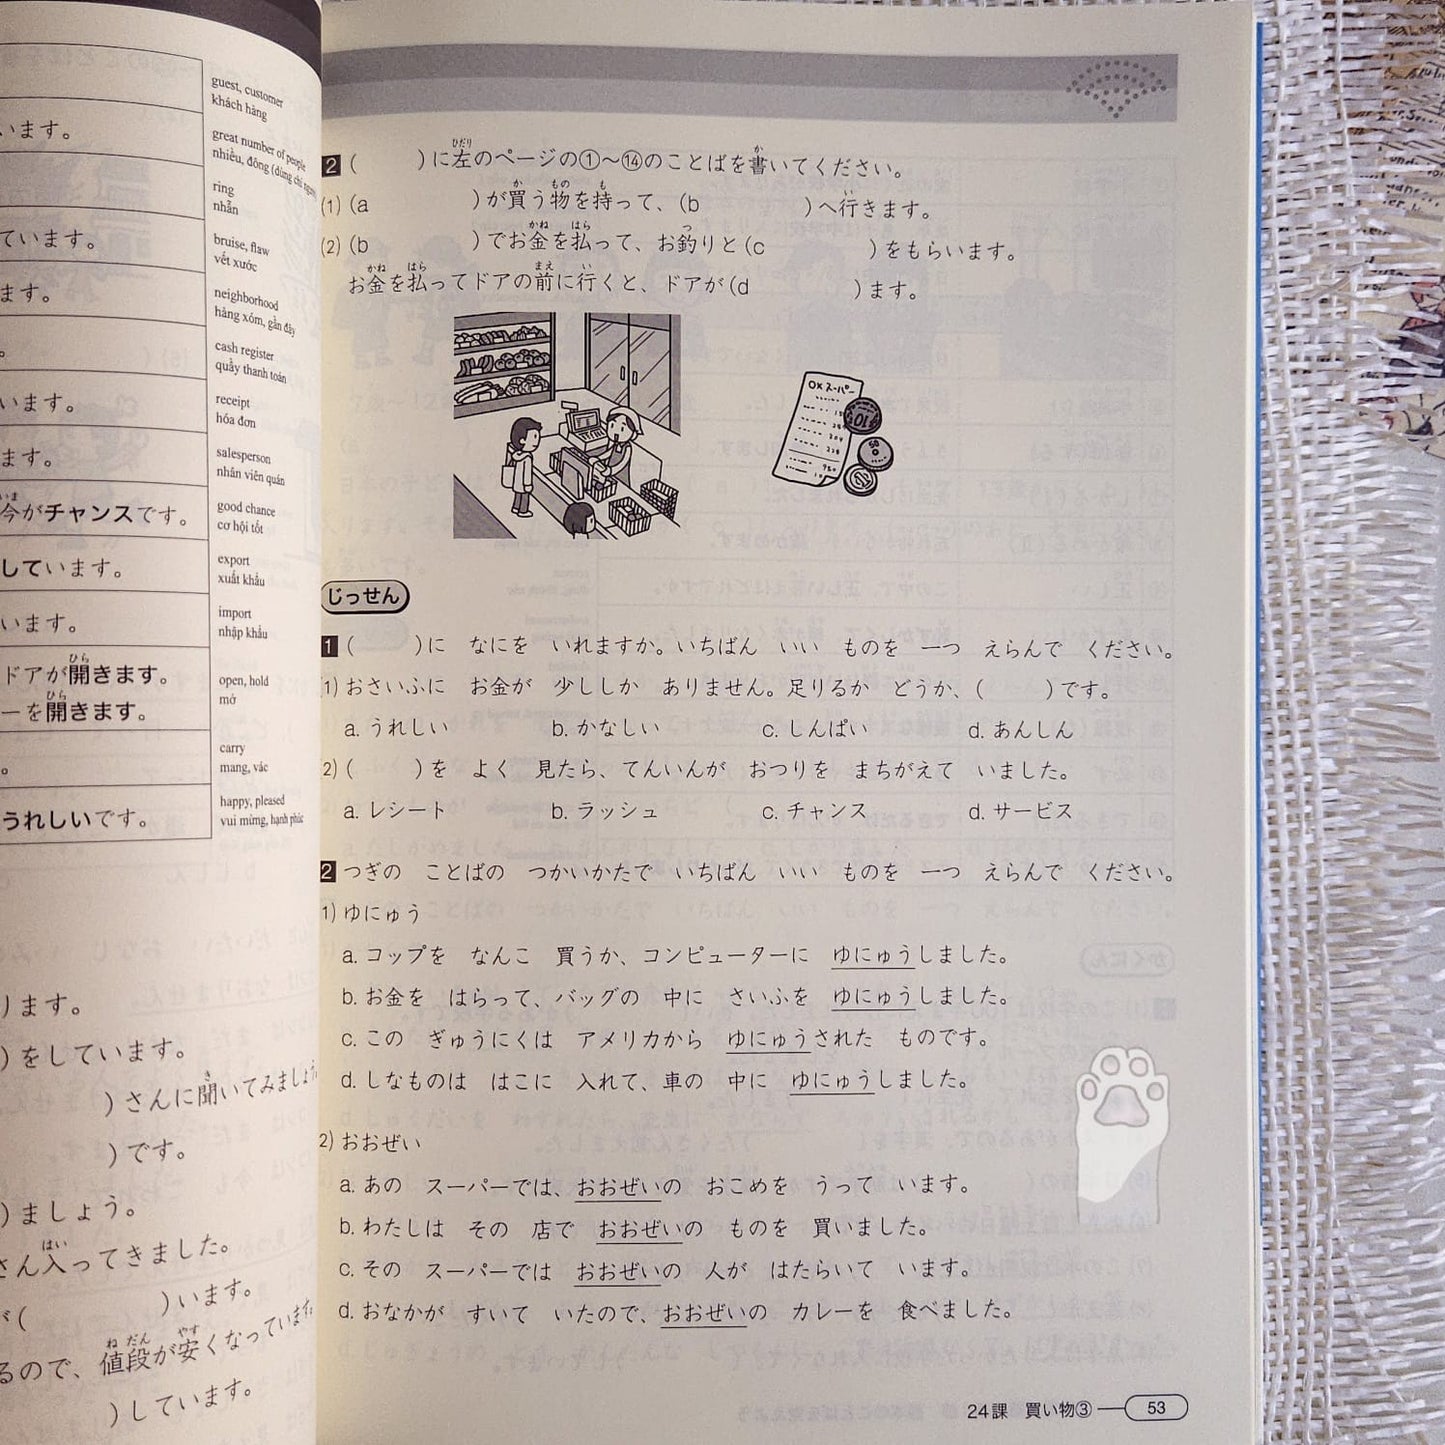 guest, customer
khách hàng
います。
great number of people
nhiều, đông (dùng chỉ người
ring
nhẫn
ています。
bruise, flaw
vết xước
ます。
neighborhood
hàng xóm, gần đây
。
cash register
quầy thanh toán
います。
receipt
hóa đơn
ます。
salesperson
nhân viên quán
今がチャンスです。
いま
good chance
cơ hội tốt
しています。
export
xuất khẩu
います。
import
nhập khẩu
ドアが開きます。
ひら
ーを開きます。
ひら
open, hold
mở
。
carry
mang, vác
うれしいです。
happy, pleased
vui mừng, hạnh phúc
ります。
)をしています。
)さんに聞いてみましょう
き
)です。
)ましょう。
さん入ってきました。
はい
が(　　　)います。
るので、値段が安くなっています。
ねだん　やす
)しています。
2 (　　　)に左のページの①〜⑭のことばを書いてください。
ひだり　か
(1) (a　　　)が買う物を持って、(b　　　)へ行きます。
か　もの　も　い
(2) (b　　　)でお金を払って、お釣りと(c　　　)をもらいます。
かね　はら　つ
お金を払ってドアの前に行くと、ドアが(d　　　)ます。
かね　はら　まえ　い
OKスーパー
10
50
じっせん
1 (　　　)に　なにを　いれますか。いちばん　いい　ものを　一つ　えらんで　ください。
1) おさいふに　お金が　少ししか　ありません。足りるか　どうか、(　　　)です。
a. うれしい　b. かなしい　c. しんぱい　d. あんしん
2) (　　　)を　よく　見たら、てんいんが　おつりを　まちがえて　いました。
a. レシート　b. ラッシュ　c. チャンス　d. サービス
2 つぎの　ことばの　つかいかたで　いちばん　いい　ものを　一つ　えらんで　ください。
1) ゆにゅう
a. コップを　なんこ　買うか、コンピューターに　ゆにゅうしました。
b. お金を　はらって、バッグの　中に　さいふを　ゆにゅうしました。
c. この　ぎゅうにくは　アメリカから　ゆにゅうされた　ものです。
d. しなものは　はこに　入れて、車の　中に　ゆにゅうしました。
2) おおぜい
a. あの　スーパーでは、おおぜいの　おこめを　うって　います。
b. わたしは　その　店で　おおぜいの　ものを　買いました。
c. その　スーパーでは　おおぜいの　人が　はたらいて　います。
d. おなかが　すいて　いたので、おおぜいの　カレーを　食べました。
24課　買い物③　53